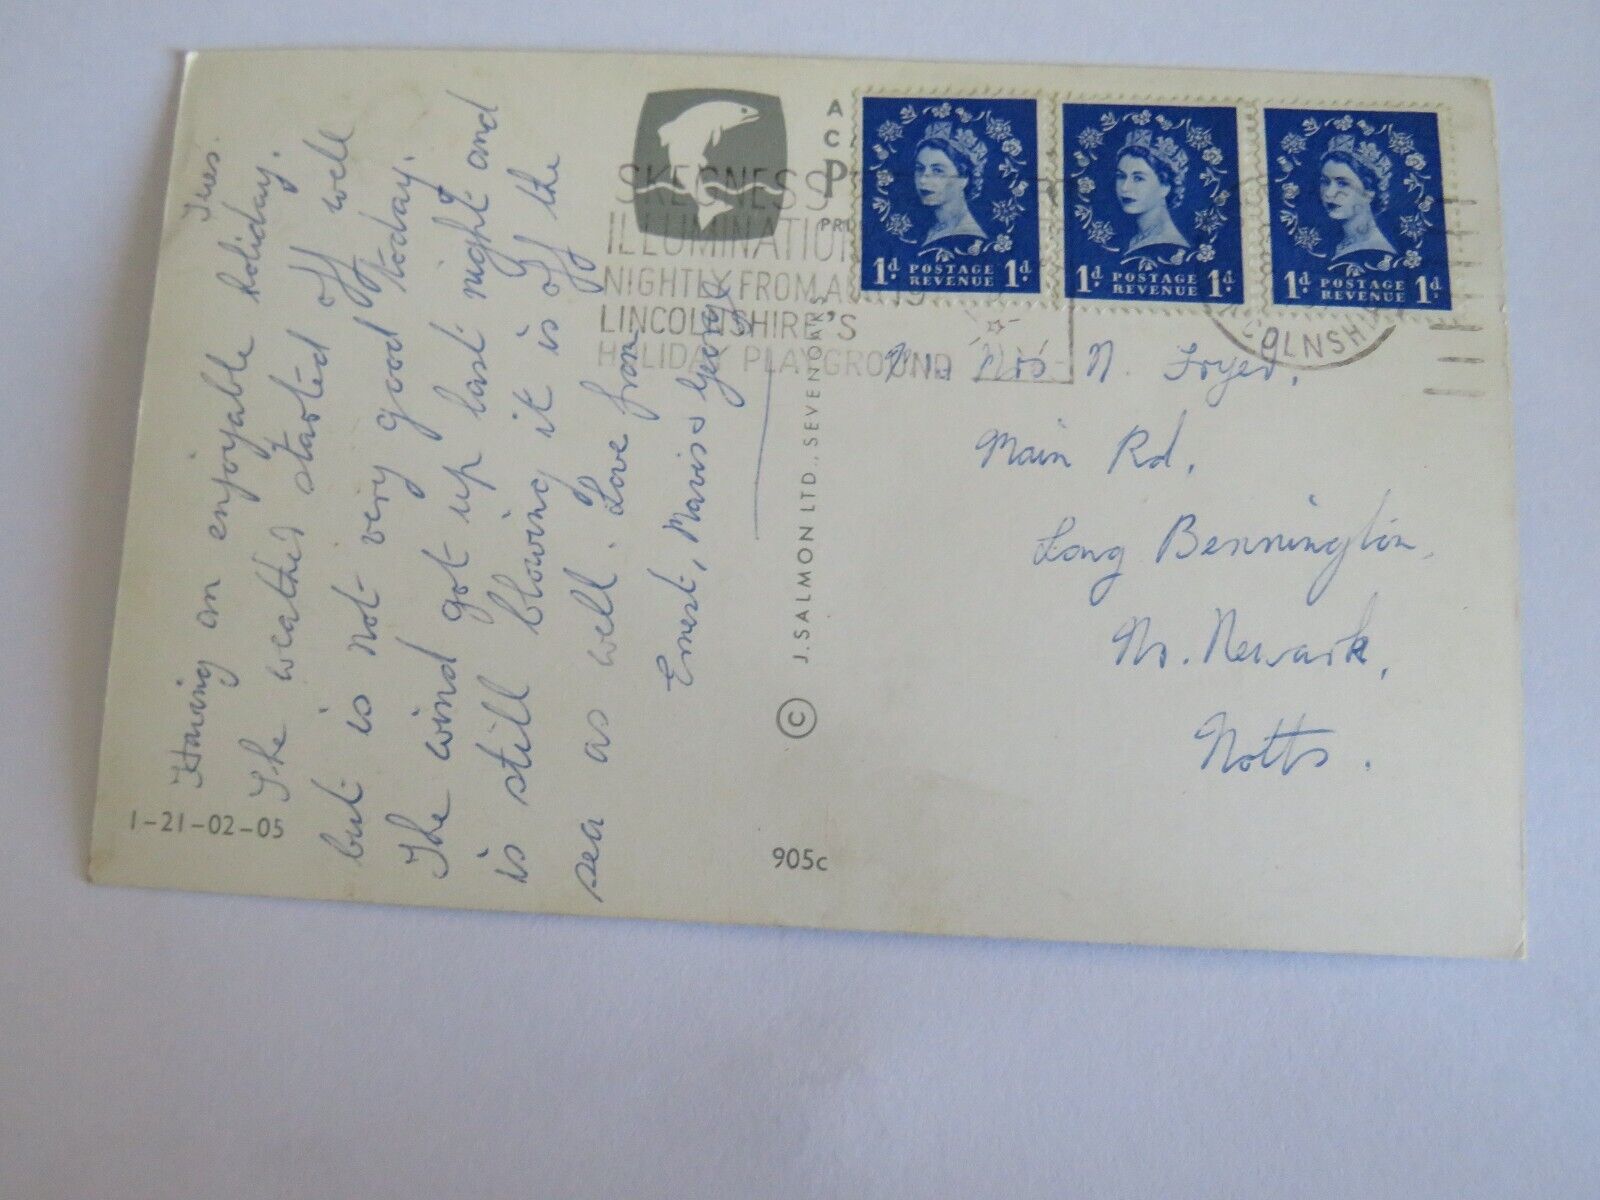 Tues.
Having an enjoyable holiday.
The weather started off well
but is not very good today.
The wind got up last night and
is still blowing it is off the
sea as well. Love from
Ernest, Mavis & George
1-21-02-05
905c
© J. SALMON LTD., SEVENOAKS
A
C
P
PRI
SKEGNESS
ILLUMINATION
NIGHTLY FROM
LINCOLNSHIRE'S
HOLIDAY PLAYGROUND
1d. POSTAGE REVENUE 1d.
1d. POSTAGE REVENUE 1d.
1d. POSTAGE REVENUE 1d.
COLNSHI
Mrs N. Fryer,
Main Rd,
Long Bennington,
Nr. Newark,
Notts.